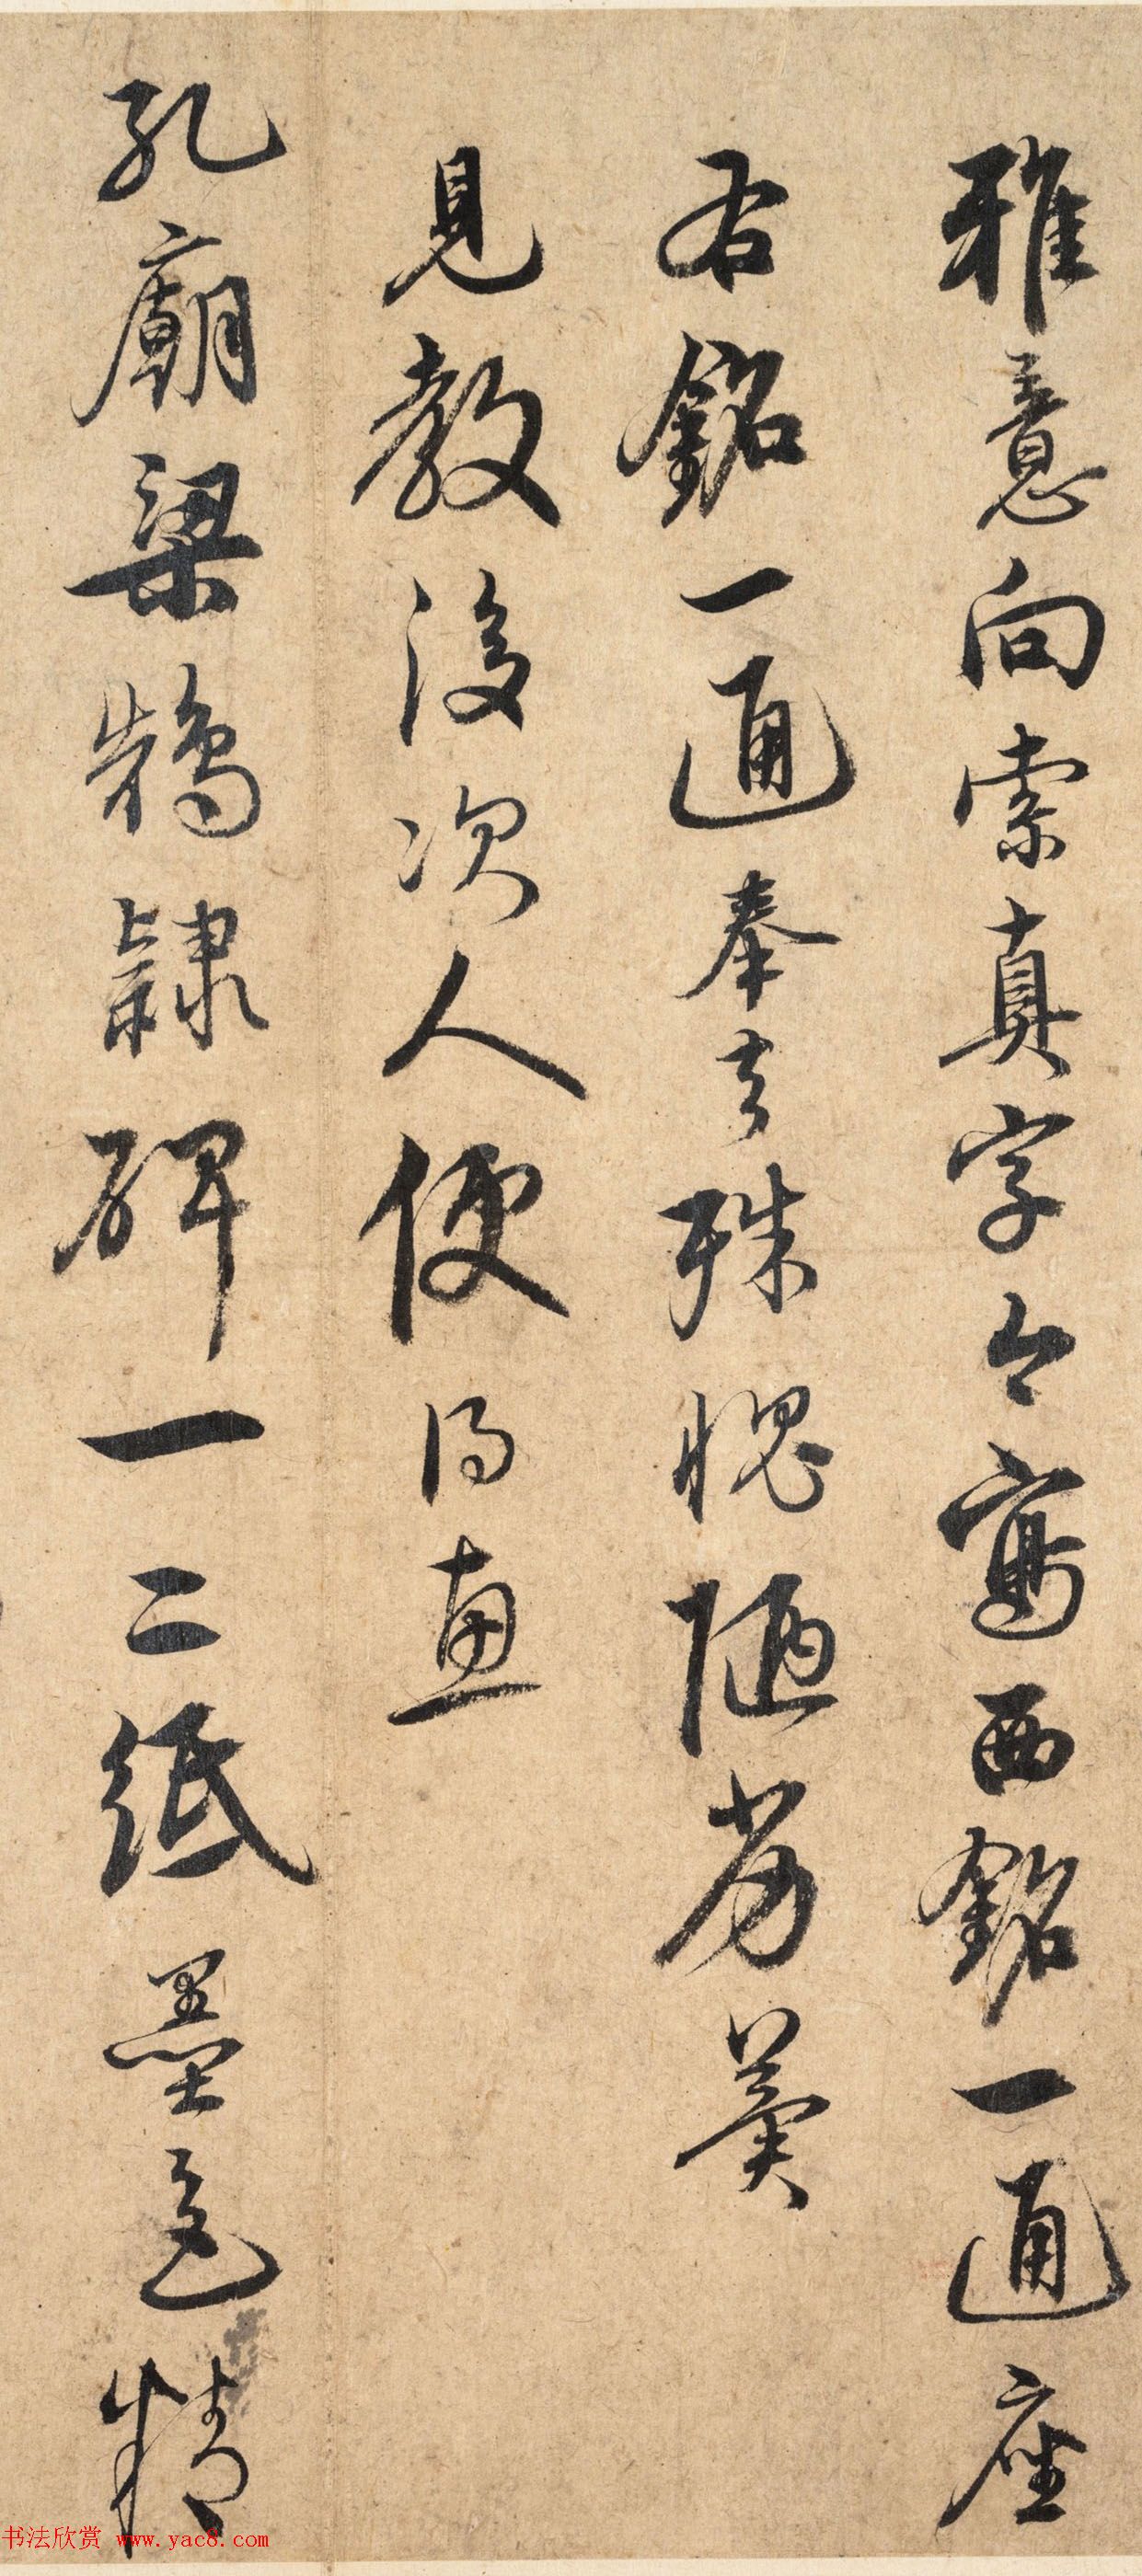 雅意向索真字今寫西銘一通座
右銘一通奉去殊愧陋劣冀
見教後次人便得惠
孔廟梁鵠隸碑一二紙墨色精
书法欣赏 www.yac8.com